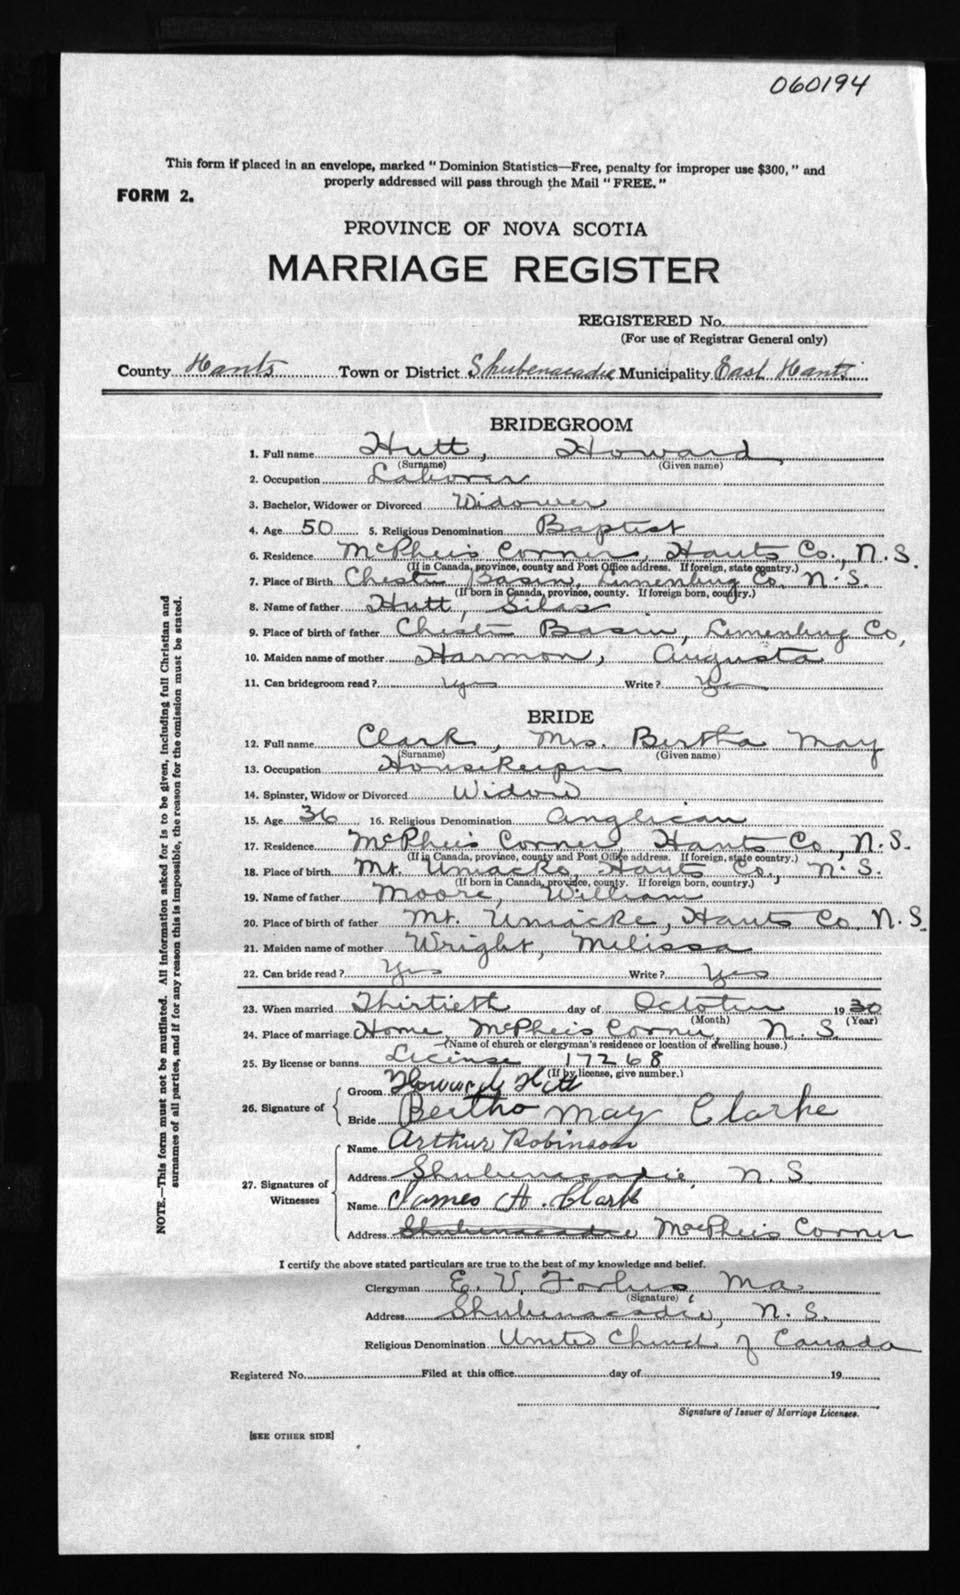 060194
This form if placed in an envelope, marked "Dominion Statistics—Free, penalty for improper use $300," and
properly addressed will pass through the Mail "FREE."
FORM 2.
PROVINCE OF NOVA SCOTIA
MARRIAGE REGISTER
REGISTERED No.
(For use of Registrar General only)
County Hants Town or District Shubenacadie Municipality East Hants
BRIDEGROOM
1. Full name Hutt, Howard
(Surname) (Given name)
2. Occupation Laborer
3. Bachelor, Widower or Divorced Widower
4. Age 50 5. Religious Denomination Baptist
6. Residence McPheis Corner, Hants Co., N.S.
(If in Canada, province, county and Post Office address. If foreign, state country.)
7. Place of Birth Chester Basin, Lunenburg Co. N.S.
(If born in Canada, province, county. If foreign born, country.)
8. Name of father Hutt, Silas
9. Place of birth of father Chester Basin, Lunenburg Co,
10. Maiden name of mother Harmon, Augusta
11. Can bridegroom read? Yes Write? Yes
BRIDE
12. Full name Clark, Mrs. Bertha May
(Surname) (Given name)
13. Occupation Housekeeper
14. Spinster, Widow or Divorced Widow
15. Age 36 16. Religious Denomination Anglican
17. Residence McPheis Corner, Hants Co., N.S.
(If in Canada, province, county and Post Office address. If foreign, state country.)
18. Place of birth Mt. Uniacke, Hants Co., N.S.
(If born in Canada, province, county. If foreign born, country.)
19. Name of father Moore, William
20. Place of birth of father Mt. Uniacke, Hants Co. N.S.
21. Maiden name of mother Wright, Melissa
22. Can bride read? Yes Write? Yes
23. When married Thirtieth day of October 1930
(Month) (Year)
24. Place of marriage Home, McPheis Corner, N.S.
(Name of church or clergyman's residence or location of dwelling house.)
25. By license or banns License 17268
(If by license, give number.)
26. Signature of Groom Howard Hutt
Bride Bertha May Clarke
27. Signatures of Witnesses Name Arthur Robinson
Address Shubenacadie, N.S
Name James H. Clark
Address Shubenacadie McPheis Corner
I certify the above stated particulars are true to the best of my knowledge and belief.
Clergyman E. V. Forbes M.a.
(Signature)
Address Shubenacadie, N.S.
Religious Denomination United Church of Canada
Registered No. Filed at this office day of 19
Signature of Issuer of Marriage Licenses.
[SEE OTHER SIDE]
NOTE.—This form must not be mutilated. All information asked for is to be given, including full Christian and
surnames of all parties, and if for any reason this is impossible, the reason for the omission must be stated.